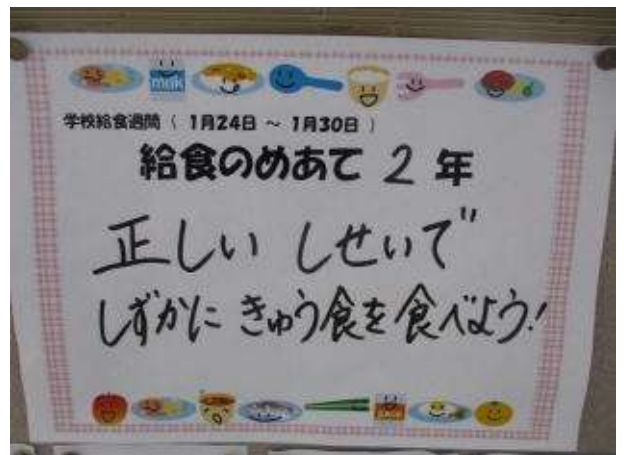 milk
学校給食週間（ 1月24日 ～ 1月30日 ）
給食のめあて 2 年
正しい しせいで
しずかに きゅう食を 食べよう!